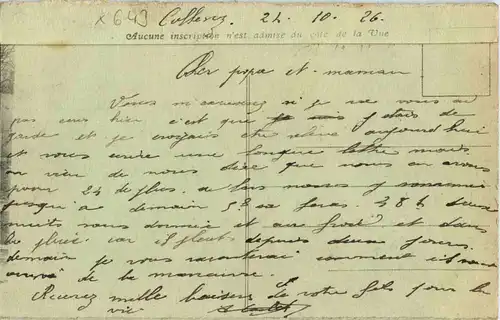 x 649 21. 10. 26.
Aucune inscription n'est admise du côté de la Vue
Cher papa et maman
Vous m'excuserez si je ne vous ai
pas hier c'est que j'etais de
garde et je croyais etre relevé aujourd'hui
et vous ecrire une longue lettre mais
on vien de nous dire que nous en avons
pour 24 de plus.
jusqu'a demain 5h sa feras. 48h deux
nuits sous et au froid et dans
la pluie. car il pleut depuis deux jours.
demain je vous raconterai comment
de la manœuvre.
Recevez mille baisers de votre fils pour la
vie